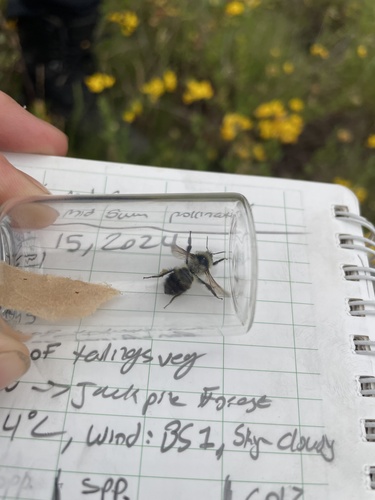 Mid Sum pollinat
15, 2024
of tailings veg
-> Jack pine Forest
4°C, Wind: BS1, Sky-cloudy
spp.